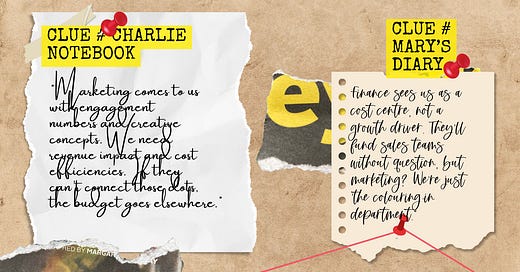 CLUE # CHARLIE
NOTEBOOK
"Marketing comes to us
with engagement
numbers and creative
concepts. We need
revenue impact and cost
efficiencies. If they
can't connect those dots,
the budget goes elsewhere."
CLUE #
MARY'S
DIARY
Finance sees us as a
cost centre, not a
growth driver. They'll
fund sales teams
without question, but
marketing? We're just
the colouring in
department.
ey
BY MARGAR